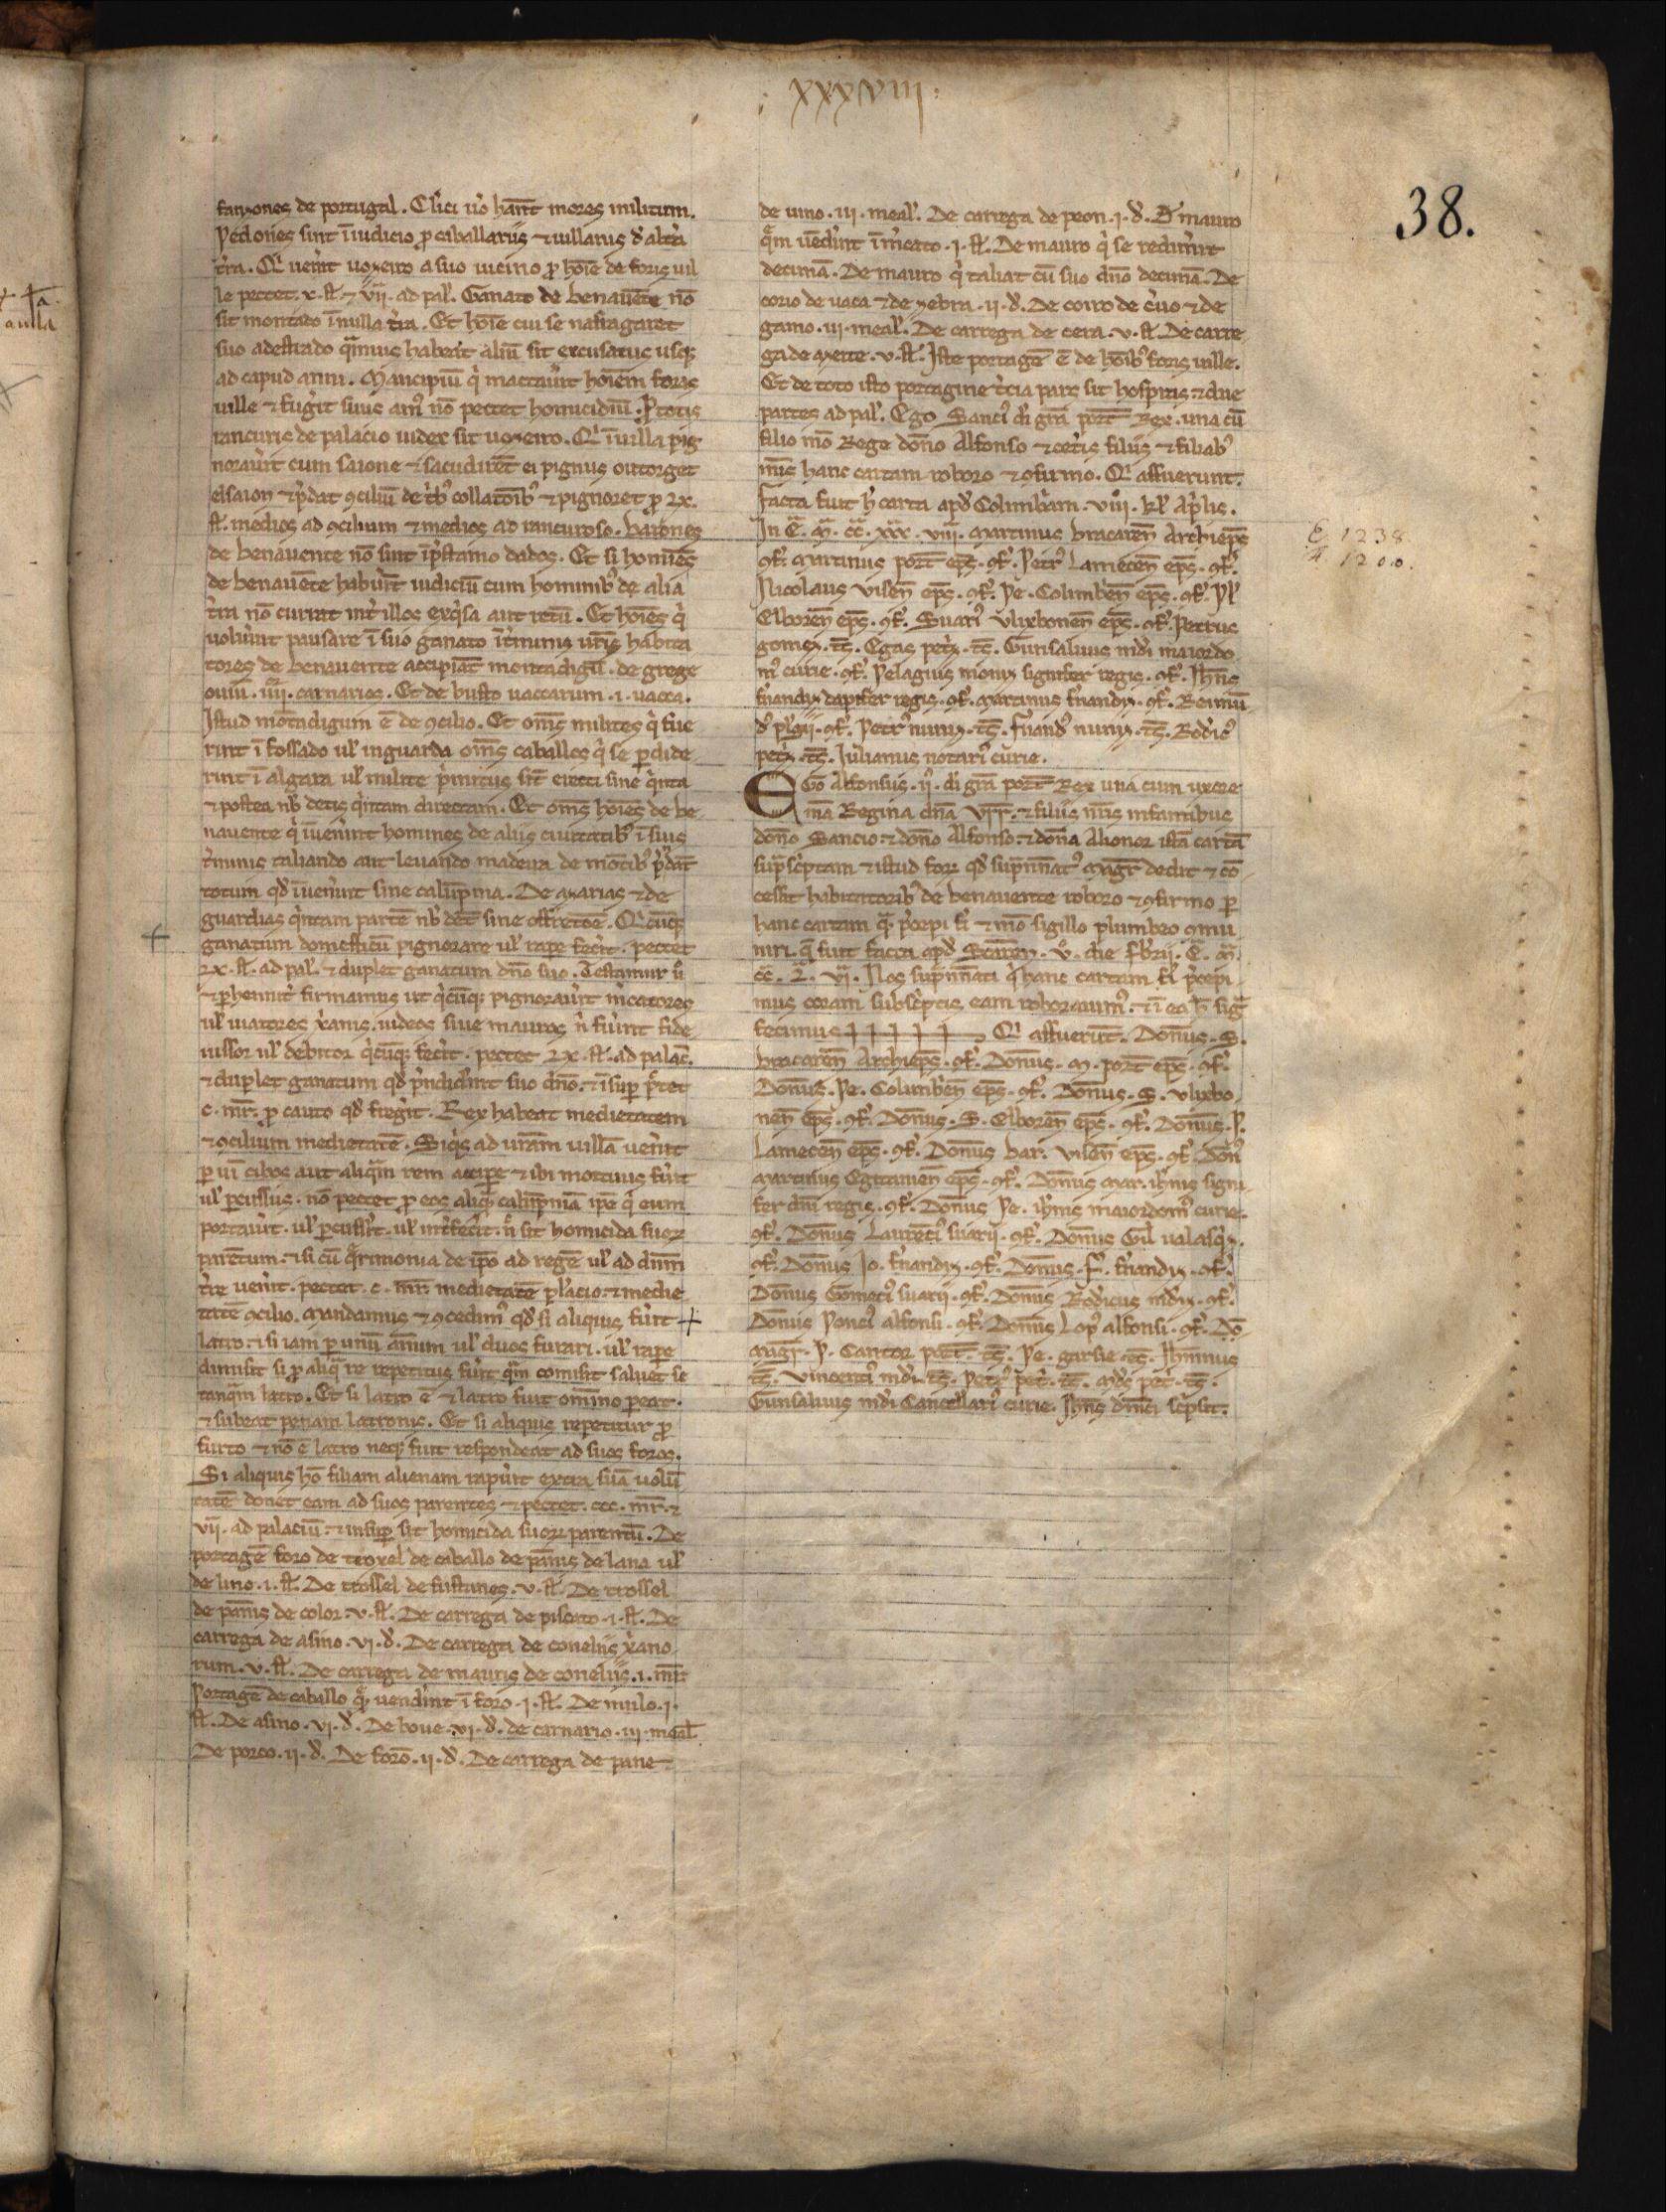 : xxxviii :
38.
fanzones de portugal. Cl'ici u'o hãnt mores militum.
Pedones sint ĩ iudicio p caballariis ⁊ uillanis d' altera
t'ra. Qi uen'it uozeiro a suo uicino p hoĩe de foris uil
le pectet .x. sl'. ⁊ vii. ad pal'. Ganato de benauẽte nõ
sit montado ĩ nulla t'ra. Et hoĩe cui se nafragaret
suo adestrado q̃muis habeat aliũ sit excusatus usq;
ad capud anni. Mancipiũ q' mactau'it hoĩem foris
uille ⁊ fug'it suus am' nõ pectet homicidiũ. P totis
rancuris de palacio iudex sit uozeiro. Qi ĩ uilla pig
norau'it cum saione ⁊ sacudir̃t ei pignus outorget
el saion ⁊ p'dat 9ciliũ de t'b' collatoĩb' ⁊ pignoret p lx.
sl'. medios ad 9cilium ⁊ medios ad rancuroso. Barones
de benauente nõ sint ĩ p'stamo dados. Et si homines
de benauẽte habu'it iudiciũ cum hominib' de alia
t'ra nõ currat int' illos exq'sa aut retũ. Et hoĩes q'
uolu'int pausare ĩ suo ganato ĩ t'minis ur̃is habita
tores de benauente accipiãt montadigũ. de grege
ouiũ .iiii. carnarios. Et de busto uaccarum .i. uacca.
Istud mõtadigum ẽ de 9cilio. Et oñs milites q' fue
rint ĩ fossado ul' in guarda oñs caballos q' se p dide
rint ĩ algara ul' milite p'mitus sĩt erecti sine q'nta
⁊ postea nb' detis q'ntam directam. Et oñs hoĩes de be
nauente q' ĩuen'int homines de aliis ciuitatib' ĩ suis
t'minis taliando aut leuando madeira de mõtib' p'dãt
totum qd' ĩuen'int sine calũpnia. De azarias ⁊ de
guardias q'ntam partẽ nb' dẽt sine offr̃cioẽ. Qi cũq;
ganatum domesticũ pignorare ul' rape fec'it. pectet
lx. sl'. ad pal'. ⁊ duplet ganatum dño suo. Testamur u'
⁊ p henniť firmamus ut q'cũq; pignorau'it m'catores
ul' uiatores x'anis. iudeos siue mauros n' fu'int fide
iussor ul' debitor q'cũq; fec'it. pectet lx. sl'. ad palac̃.
⁊ duplet ganatum qd' p'ndid'int suo dño. ⁊ ĩsup p'tet
c. mr̃. p cauto qd' freg'it. Rex habeat medietatem
⁊ 9cilium medietatẽ. Siq's ad ur̃am uillã uen'it
p uĩ cibos aut aliq̃m rem accipe ⁊ ibi mortuus fu'it
ul' p cussus. nõ pectet p eos aliq̃ calũpniã ip̃e q' eum
portau'it. ul' p cuss'it. ul' int'fec'it. n' sit homicida suoꝝ
parẽtum. ⁊ si cũ q'rimonia de ip̃o ad regẽ ul' ad dũm
t're uen'it. pectet .c. mr̃. medietatẽ p lacio. ⁊ medie
tatẽ 9cilio. Mandamus ⁊ 9cedim' qd' si aliquis fu'it +
latro. ⁊ si iam p unũ annum ul' duos furari. ul' rape
dimisit si p aliq̃ re repetitus fu'it q̃m comisit saluet se
tanq̃m latro. Et si latro ẽ ⁊ latro fuit omĩno peat.
⁊ subeat penam latronis. Et si aliquis repetitur p
furto ⁊ nõ ẽ latro neq; fuit respondeat ad suos foros.
Si aliquis hõ filiam alienam rapu'it extra suã uolũ
tatẽ donet eam ad suos parentes ⁊ pectet .ccc. mr̃. ⁊
vii. ad palaciũ. ⁊ insup sit homicida suoꝝ parentũ. De
portagẽ foro de troxel de caballo de pãnis de lana ul'
de lino .i. sl'. De trossel de fustanes .v. sl'. De trossel
de pãnis de color .v. sl'. De carrega de piscato .i. sl'. De
carrega de asino .vi. d'. De carrega de coneliis x'ano
rum .v. sl'. De carrega de mauris de coneliis .i. mr̃.
Portagẽ de caballo q̃ uend'int ĩ foro .i. sl'. De mulo .i.
sl'. De asino .vi. d'. De boue .vi. d'. de carnario .iii. meal'.
De porco .ii. d'. De forõ .ii. d'. De carrega de pane
de uino .iii. meal'. De carrega de peon .i. d'. D' mauro
q̃m uẽd'int ĩ m'cato .i. sl'. De mauro q' se redim'it
decimã. De mauro q' taliat cũ suo dño decimã. De
corio de uaca ⁊ de zebra .ii. d'. De coiro de c'uo ⁊ de
gamo .iii. meal'. De carrega de cera .v. sl'. De carre
ga de azeite .v. sl'. Iste portagẽ ẽ de hoĩb' foris uille.
Et de toto isto portagine t'cia pars sit hospitis. ⁊ due
partes ad pal'. Ego Sanci' di grã port̃ Rex. una cũ
filio mõ Rege dõno Alfonso ⁊ cet'is filiis ⁊ filiab'
mĩs hanc cartam roboro ⁊ 9firmo. Qi affuerunt.
Facta fuit h' carta apd' Columbr̃am. viii. kl' Ap'lis.
In Ẽ. M̃. cc̃. xxx. viii. Martinus bracareñ Archieps̃
9f'. Martinus port̃ eps̃. 9f'. Petr' Lameceñ eps̃. 9f'.
Nicolaus Viseñ eps̃. 9f'. Pe. Columbeñ eps̃. 9f'. Pl'
Elboreñ eps̃. 9f'. Suari' Vlixboneñ eps̃. 9f'. Petrus
gomez. ts̃. Egas pet'z. ts̃. Gunsaluus m'di maiordo
m' curie. 9f'. Pelagius moniz signifer regis. 9f'. Ihñs
f'nandiz dapifer regis. 9f'. Martinus f'nandiz. 9f'. Reimũ
d' p'lgii. 9f'. Petr' nuniz. ts̃. F'nand' nuniz. ts̃. Rod'ic'
pet'z. ts̃. Iulianus notari' curie.
EGo Alfonsus .ii. di grã port̃ Rex una cum uxore
mã Regina dña Vrr̃. ⁊ filiis nr̃is infantibus
dõno Sancio. ⁊ dõno Alfonso. ⁊ dõna Alionor istã cartã
sup̃sc'ptam ⁊ istud foꝝ qd' sup̃nĩat' Magr̃ dedit ⁊ cõ
cessit habitatorib' de benauente roboro ⁊ 9firmo p
hanc cartam q̃ p'cepi f'i ⁊ mõ sigillo plumbeo 9mu
niri. q̃ fuit facta apd' Scãreñ. v. die f'br̃ii. Ẽ. M̃.
cc̃. l̃. vi. Nos sup̃nĩati q' hanc cartam f'i p'cepi
mus coram subsc'ptis eam roborauim'. ⁊ ĩ ea h' sig̃
fecimus + + + + + Qi affuerũt. Donnus. S.
bracareñ Archieps̃. 9f'. Donnus. M. port̃ eps̃. 9f'.
Donnus. Pe. Columbeñ eps̃. 9f'. Donnus. S. Vlixbo
neñ eps̃. 9f'. Donnus. S. Elboreñ eps̃. 9f'. Donnus. P.
Lameceñ eps̃. 9f'. Donnus bar. Viseñ eps̃. 9f'. Don'
Martinus Egitanieñ eps̃. 9f'. Donnus Mar. ih'nis signi
fer dñi regis. 9f'. Donnus Pe. ih'nis maiordom' curie.
9f'. Donnus Laurẽti' suarii. 9f'. Donnus Gil ualasq'z.
9f'. Donnus Io. f'nandiz. 9f'. Donnus. F. f'nandiz. 9f'.
Donnus Gomeci' suarii. 9f'. Donnus Rod'icus m'diz. 9f'.
Donnus Ponci' alfonsi. 9f'. Donnus Lop' alfonsi. 9f'. Dõ
Magr̃. P. Cantor port̃. ts̃. Pe. garsie. ts̃. Ihñinus
ts̃. Vincenti' m'di. ts̃. Petr' pet'. ts̃. M'ds pet'. ts̃.
Gunsaluus m'di Cancellari' curie. Ihñs d'nici sc'psit.
E. 1238.
A. 1200.